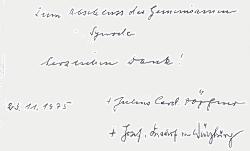 Zum Abschluss der Gemeinsamen
Synode
herzlichen Dank!
23.11.1975 + Julius Card. Döpfner
+ Josef, Bischof von Würzburg